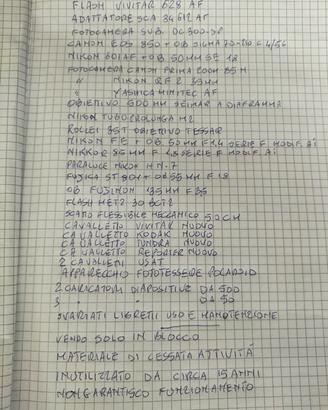 FLASH VIVITAR 628 AF
ADATTATORE SCA 346/2 AF
FOTOCAMERA SUB. DC300-SP
CANON EOS 850 + OB SIGMA 70-210 F 4/56
NIKON 601AF + OB 50MM SE 1.8
FOTOCAMERA CANON PRIMA ZOOM 85 N
" NIKON RF2 35MM
" YASHICA MINITEC AF
OBIETTIVO 500 MM SEIMAR A DIAFRAMMA
NIKON TUBO PROLUNGA M2
ROLLEI 35T OBIETIVO TESSAR
NIKON FE + OB 50MM F1.4 SERIE F MODIF. AI
NIKKOR 85 MM F 1,8 SERIE F MODIF. AI
PARALUCE NIKON HN-7
FUJICA ST 801 + OB 55 MM F 1.8
OB FUJINON 135 MM F 3.5
FLASH METZ 30 BCT2
SCATTO FLESSIBILE MECCANICO 50 CM
CAVALLETTO VIVITAR NUOVO
CAVALLETTO KODAK NUOVO
CAVALLETTO TUNDRA NUOVO
CAVALLETTO REPORTER NUOVO
2 CAVALLETTI USATI
APPARECCHIO FOTOTESSERE POLAROID
2 CARICATORI DIAPOSITIVE DA 500
3 " " DA 50
SVARIATI LIBRETTI USO E MANUTENZIONE
VENDO SOLO IN BLOCCO
MATERIALE DI CESSATA ATTIVITÀ
INUTILIZZATO DA CIRCA 15 ANNI
NON GARANTISCO FUNZIONAMENTO